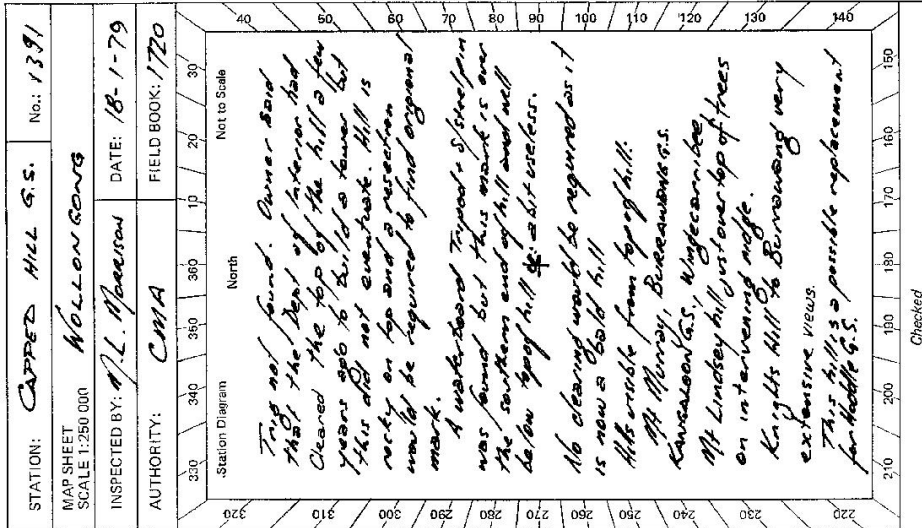 STATION: CAPPED HILL G.S. No.: 1391
MAP SHEET
SCALE 1:250 000 WOLLONGONG
INSPECTED BY: L. MORRISON DATE: 18-1-79
AUTHORITY: CMA FIELD BOOK: 1720
330 340 350 360 10 20 30
Station Diagram North Not to Scale
320 310 300 290 280 270 260 250 240 230 220
40 50 60 70 80 90 100 110 120 130 140
Trig not found. Owner said
that the Dept of Interior had
Cleared the top of the hill a few
years ago to build a tower but
this did not eventuate. Hill is
rocky on top and a resection
would be required to find original
mark.
A waterboard Tripod & S/steel pin
was found but this mark is over
the southern end of hill and well
below top of hill ie. abit useless.
No clearing would be required as it
is now a bald hill
Hills visible from top of hill:
Mt Murray, BURRAWANG G.S.
KANGAROON G.S., Wingecarribee
Mt Lindsey hill just over top of trees
on intervening ridge.
Knights Hill to Burrawang very
extensive views.
This hill is a possible replacement
for Noddle G.S.
210 200 190 180 170 160 150
Checked